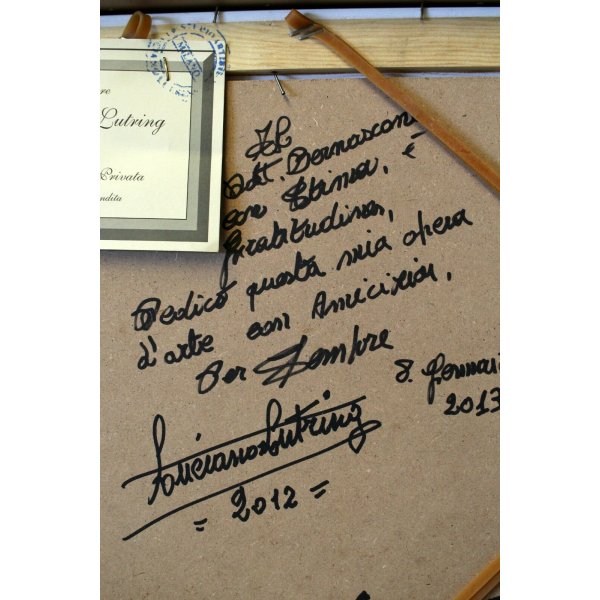 re
Lutring
Privata
ndita
MILANO
Al
Dott. Bernascon
con Stima, e
Gratitudine,
Dedico questa mia opera
d'arte con Amicizia,
Per Sempre
8. Gennai
2013
Luciano Lutring
= 2012 =